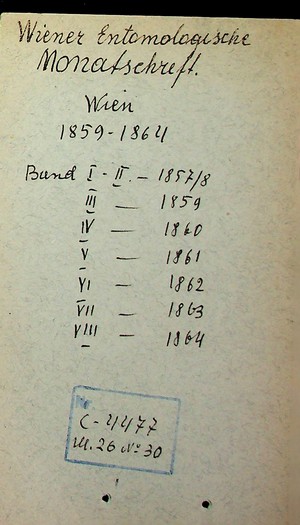 Wiener Entomologische
Monatschrift.
Wien
1859-1864
Band I - II. — 1857/8
III — 1859
IV — 1860
V — 1861
VI — 1862
VII — 1863
VIII — 1864
C-4477
Ш.26 № 30